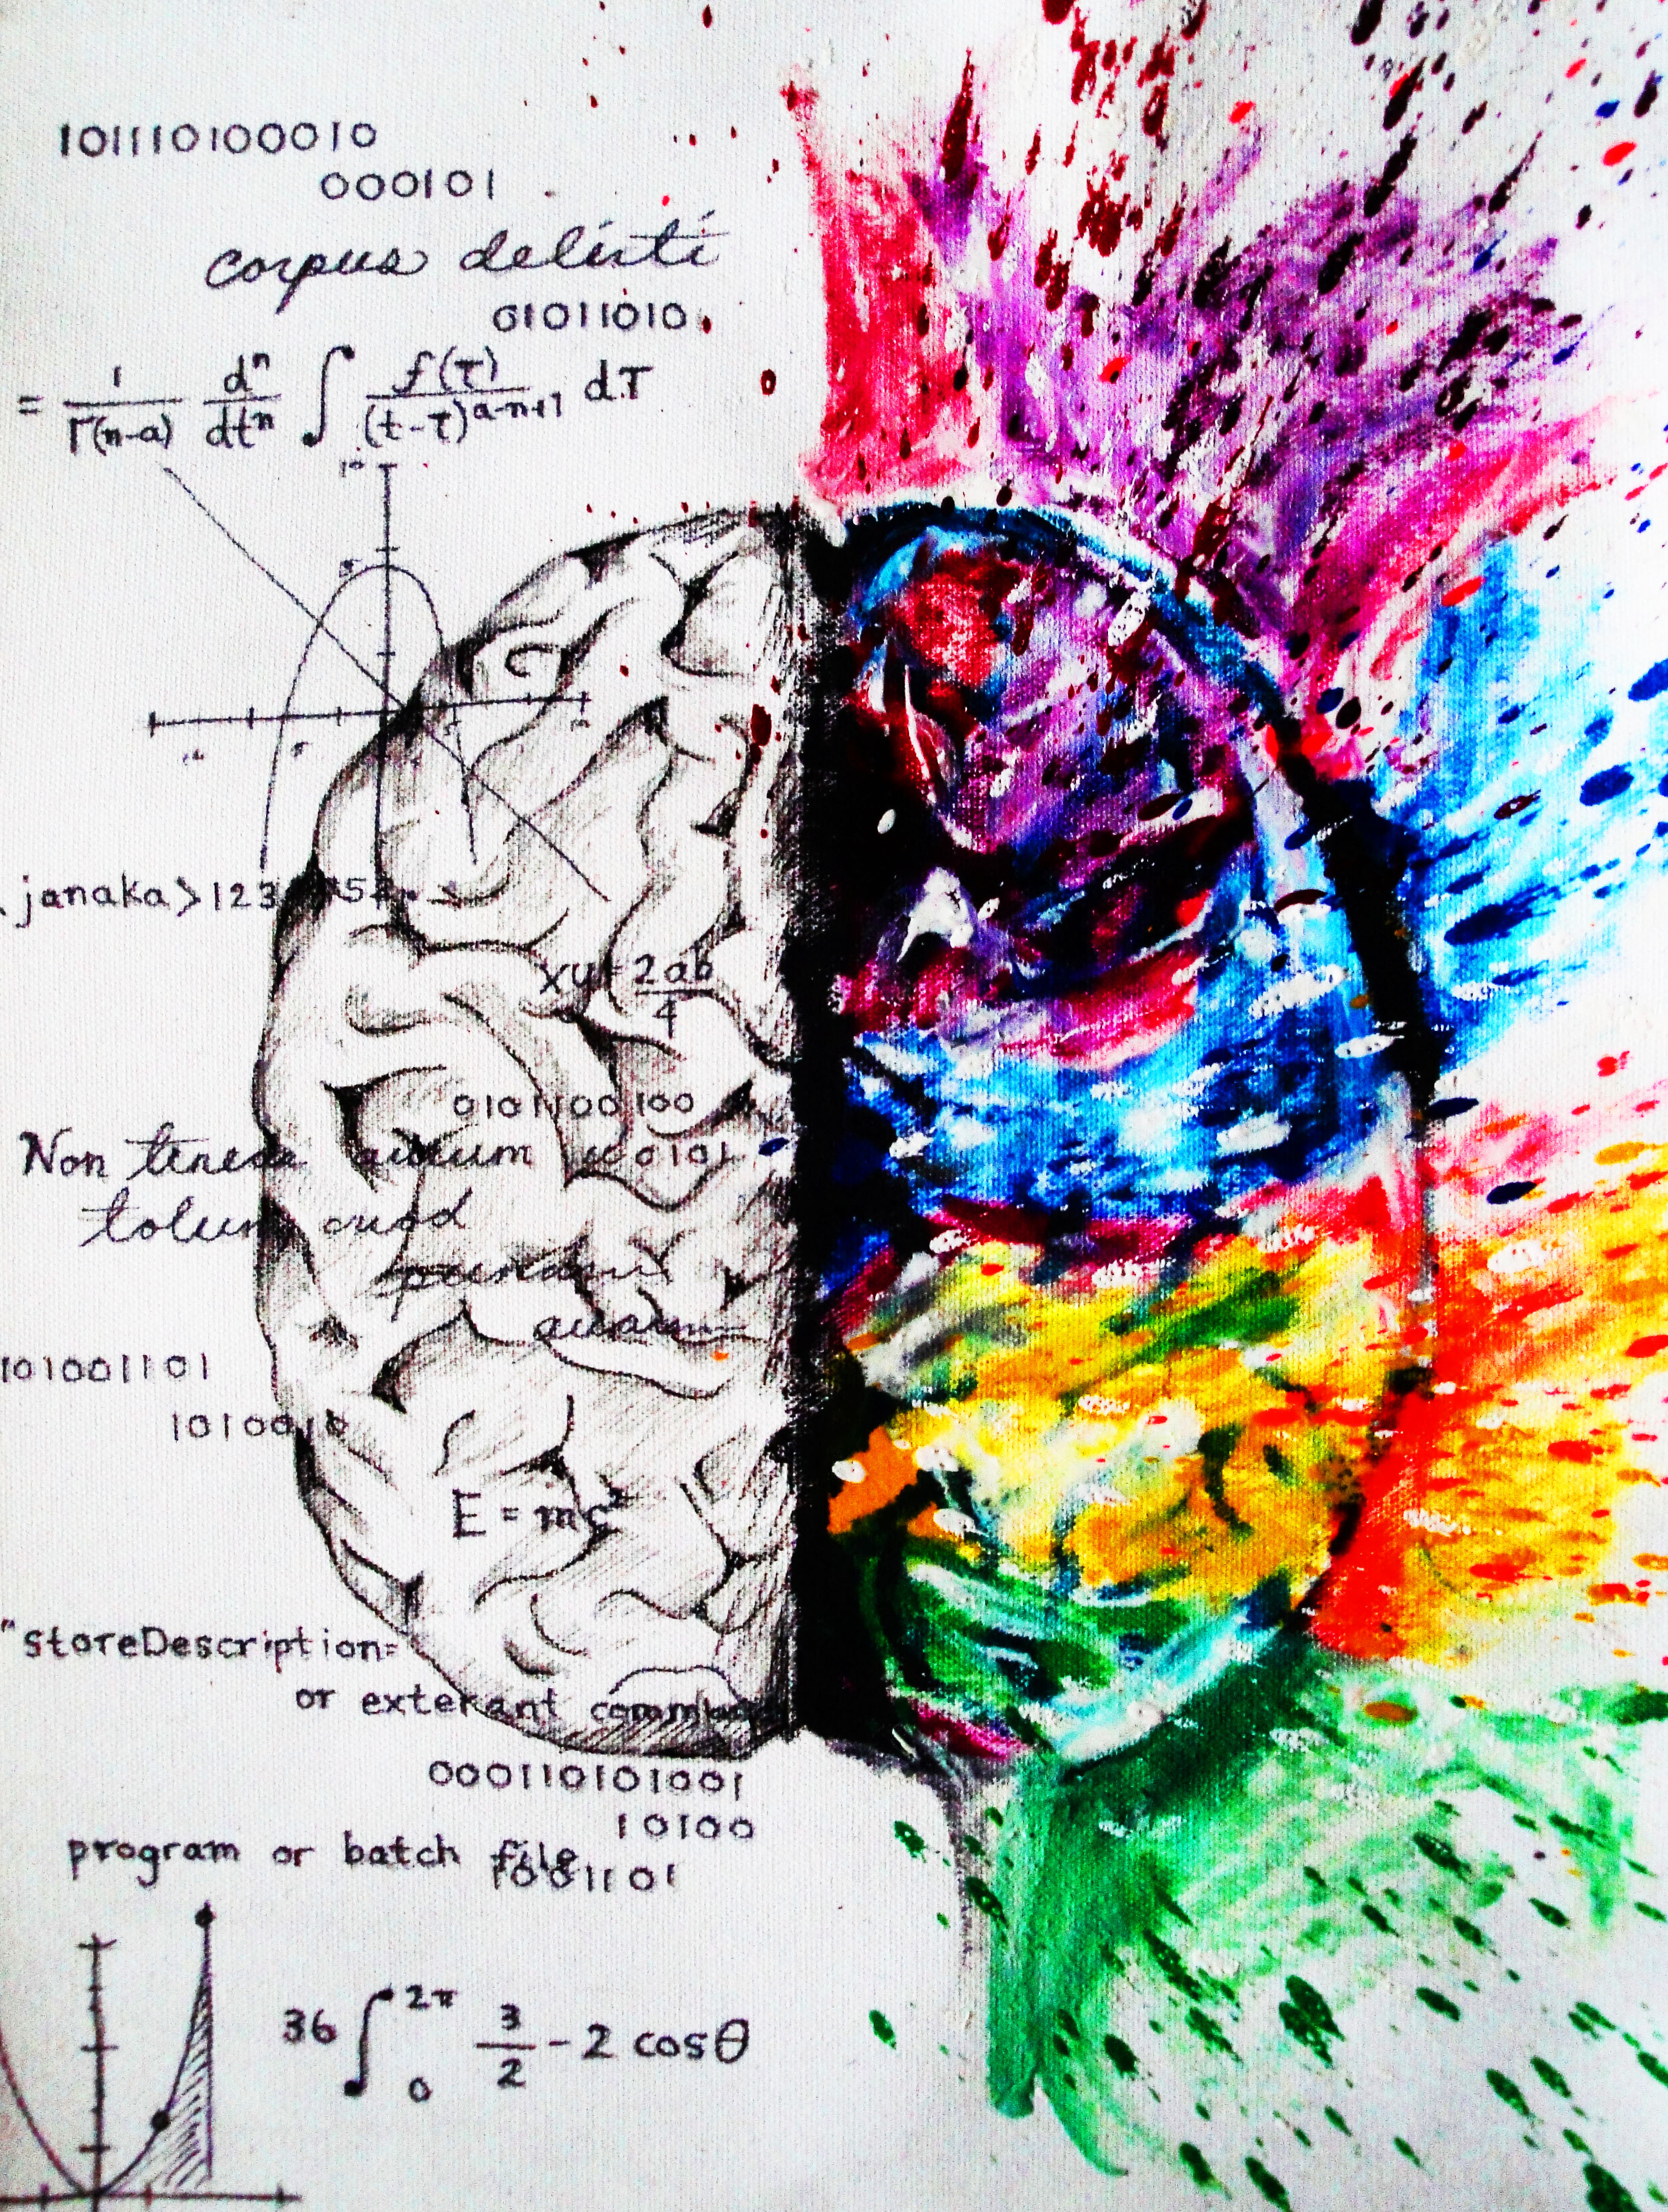 101110100010
000101
corpus delicti
01011010
= 1/Γ(n-a) dⁿ/dtⁿ ∫ f(τ)/(t-τ)^(a-n+1) dτ
10
5
janaka>123
xy 2ab/4
0101100100
Non
tolum quod
101001101
1010010
E = mc²
"storeDescription=
or exterant
000110101001
10100
program or batch file
1001101
36 ∫₀^2π 3/2 - 2 cosθ